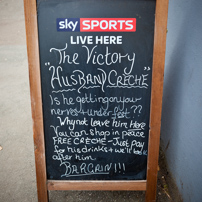 sky SPORTS
LIVE HERE
"The Victory
HUSBAND CRÈCHE"
Is he getting on your
nerves + under feet??
Why not leave him Here
You can shop in peace
FREE CRÈCHE - Just pay
for his drinks + we'll look
after him.
BARGAIN!!!